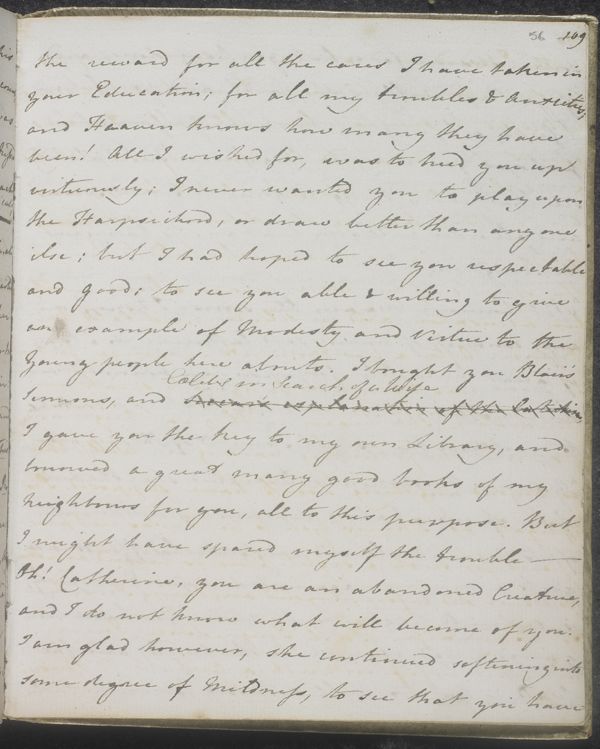 56 109
the reward for all the cares I have taken in
your Education; for all my troubles & Anxieties;
and Heaven knows how many they have
been! All I wished for, was to breed you up
virtuously; I never wanted you to play upon
the Harpsichord, or draw better than any one
else; but I had hoped to see you respectable
and good; to see you able & willing to give
an example of Modesty and Virtue to the
Young people here abouts. I bought you Blair's
Cœlebs in Search of a Wife
Sermons, and Seccar's explanation of the Catechism,
I gave you the key to my own Library, and
borrowed a great many good books of my
Neighbours for you, all to this purpose. But
I might have spared myself the trouble —
Oh! Catherine, you are an abandoned Creature,
and I do not know what will become of you.
I am glad however, she continued softening into
some degree of Mildness, to see that you have